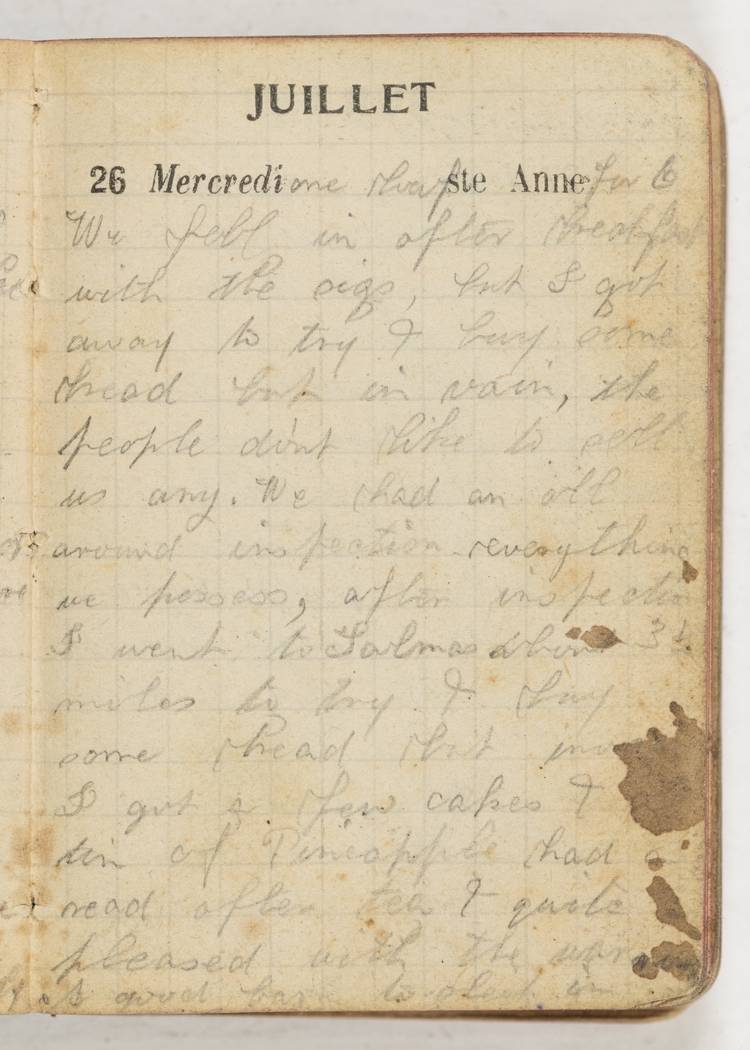 JUILLET
26 Mercredi one loaf ste Anne for 6
We fell in after breakfast
with the sigs, but I got
away to try & buy some
bread but in vain, the
people dont like to sell
us any. We had an all
around inspection everything
we possess, after inspection
I went to Talmas about 3½
miles to try & buy
some bread but
I got a few cakes &
tin of Pineapple had a
read after tea & quite
pleased with the
A good barn to sleep in